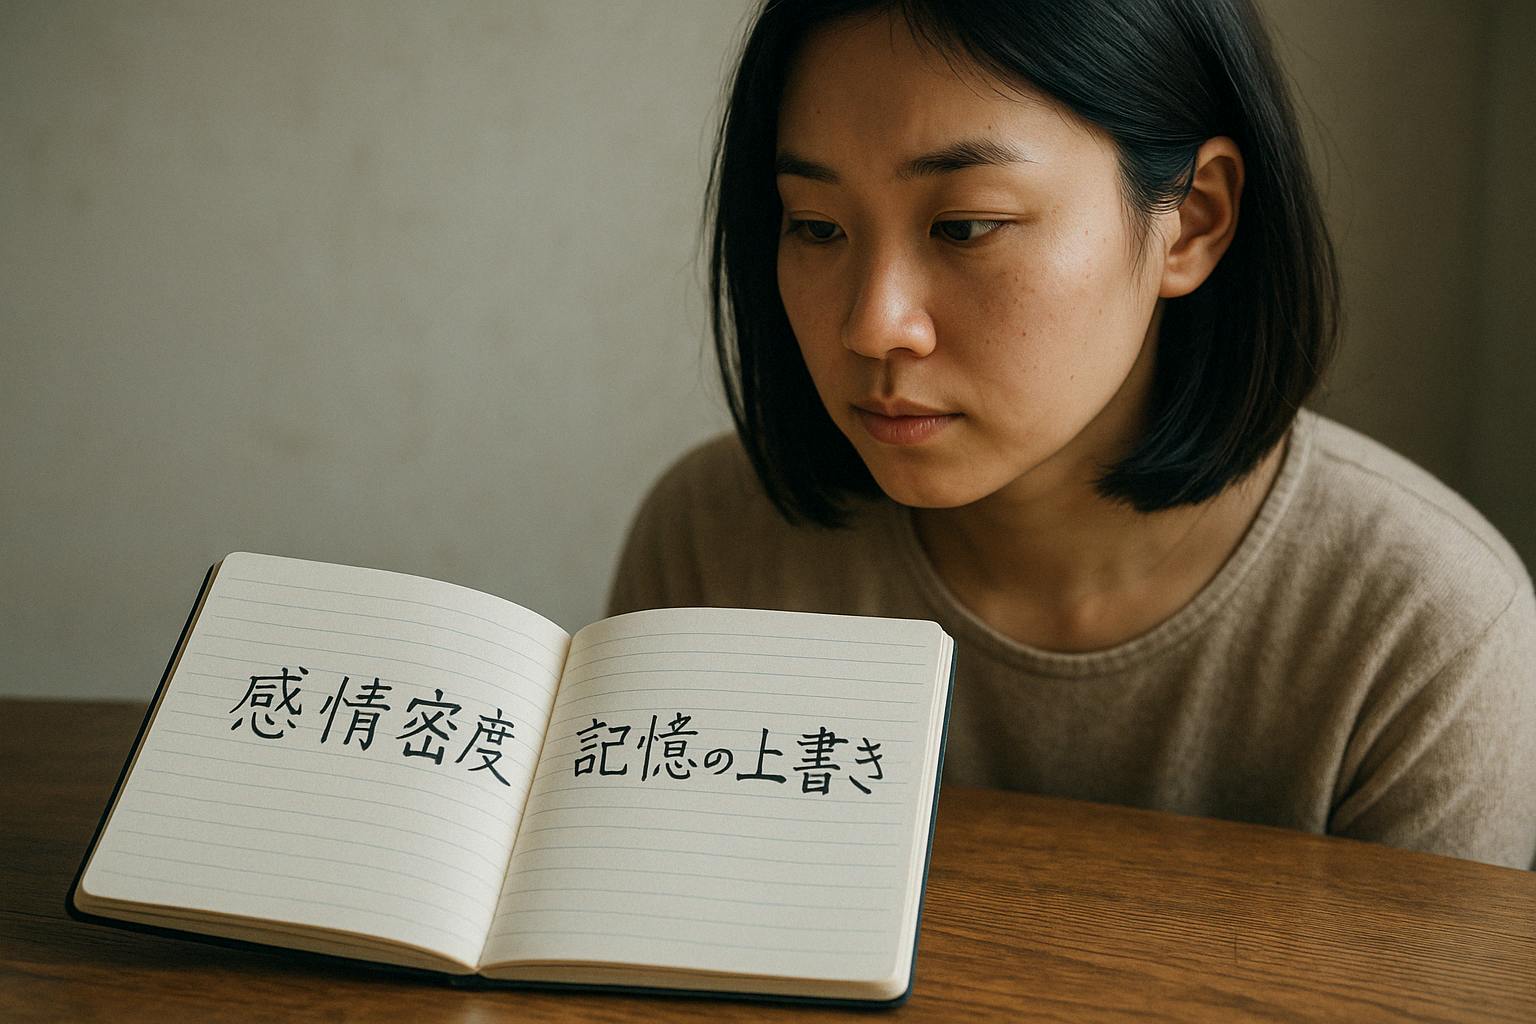 感情密度
記憶の上書き